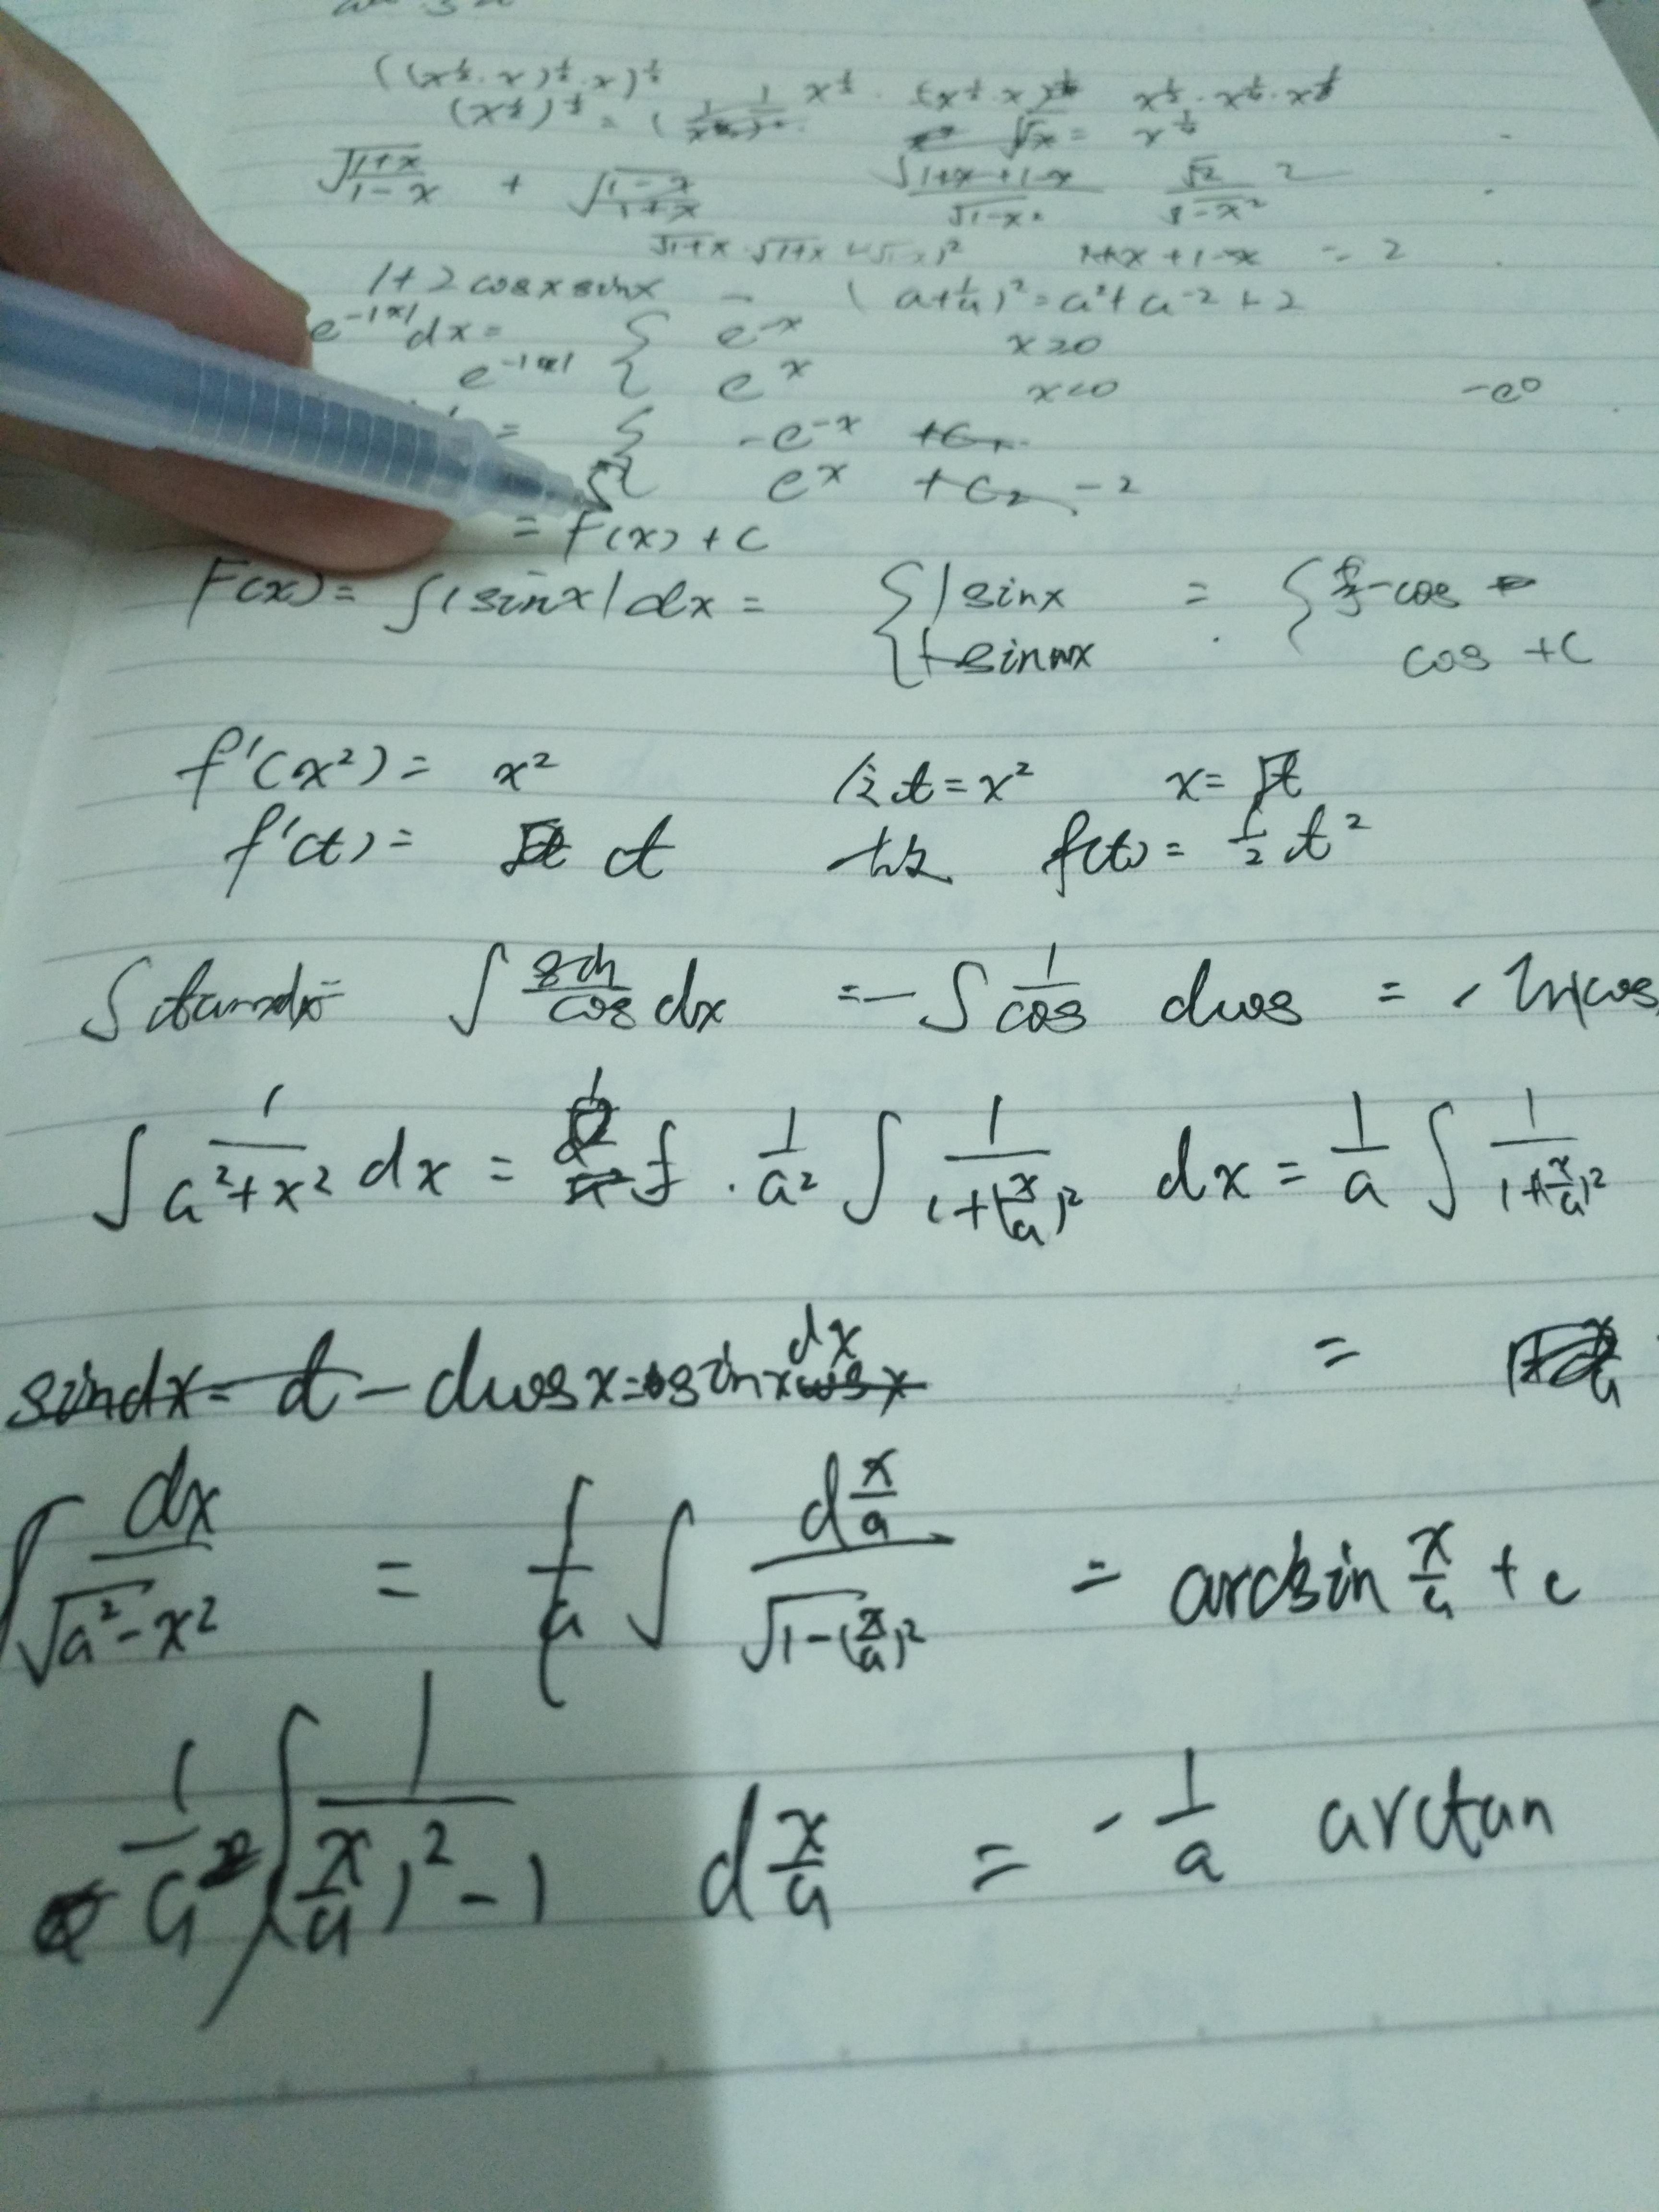 ((x^½·x)^½·x)^½
√(1+x)/(1-x) + √(1-x)/(1+x)
1+x+1-x = 2
1+2cosxsinx - (a+1/a)²=a²+a^-2+2
e^-|x| dx= { e^-x x≥0
e^-|x| { e^x x<0 -e⁰
= { -e^-x +C₁
e^x +C₂ -2
= F(x)+C
F(x)= ∫|sinx|dx = { sinx = { -cos
-sinx cos +C
f'(x²)= x² 令t=x² x=√t
f'(t)= t 故 f(t)=½t²
∫tanxdx= ∫ sin/cos dx =-∫ 1/cos dcos = -ln|cos
∫ 1/(a²+x²) dx = · 1/a² ∫ 1/(1+(x/a)²) dx = 1/a ∫ 1/(1+(x/a)²)
sindx= t -dcosx=sinxdx =
∫ dx/√(a²-x²) = 1/a ∫ d x/a /√(1-(x/a)²) = arcsin x/a +c
1/a ∫ 1/((x/a)²-1) d x/a = -1/a arctan